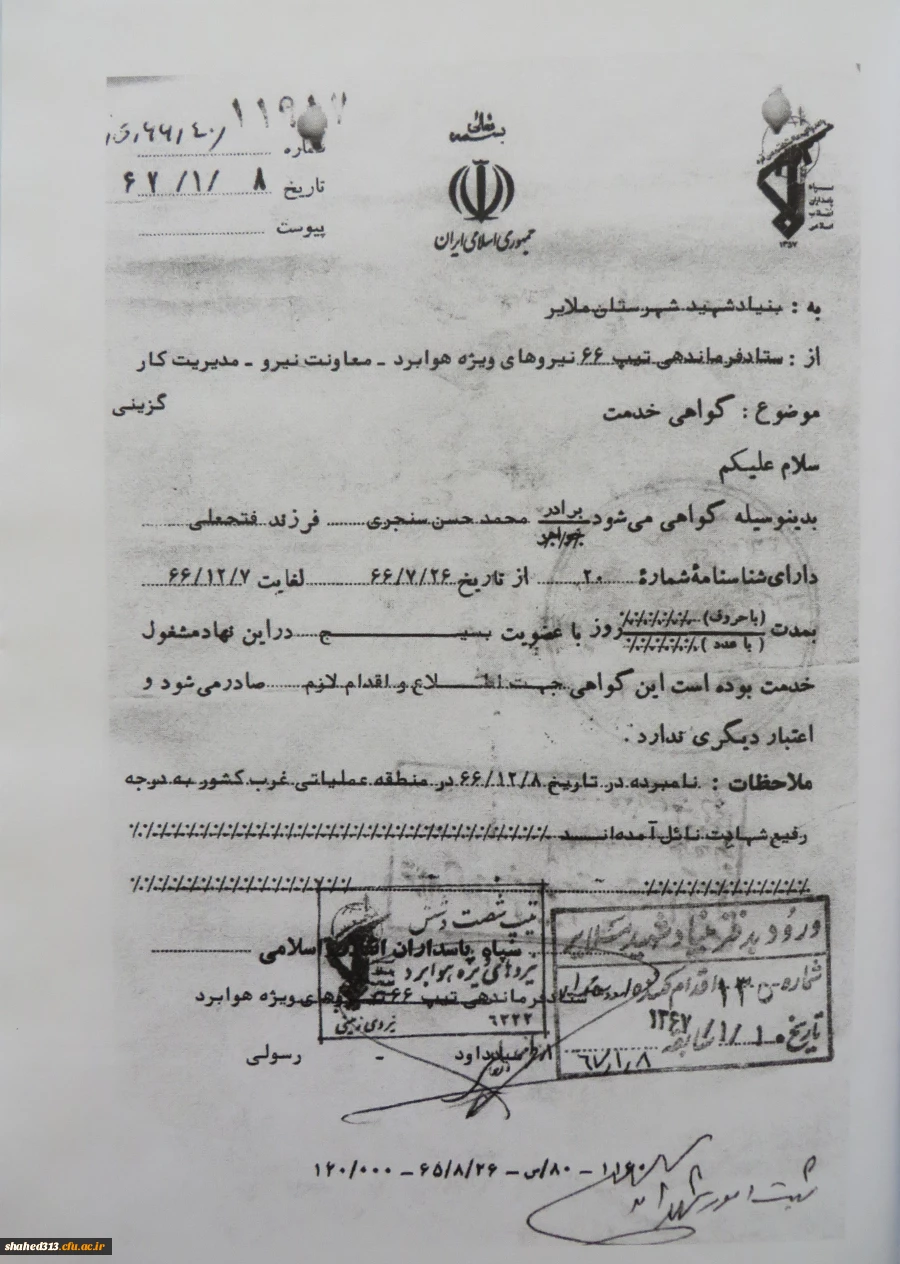 بسمه تعالی
جمهوری اسلامی ایران
سپاه پاسداران انقلاب اسلامی
۱۳۵۷
شماره
تاریخ ۸ /۱/ ۶۷
پیوست
به : بنیاد شهید شهرستان ملایر
از : ستاد فرماندهی تیپ ۶۶ نیروهای ویژه هوابرد - معاونت نیرو - مدیریت کار
گزینی
موضوع : گواهی خدمت
سلام علیکم
بدینوسیله گواهی می‌شود برادر محمد حسن سنجری فرزند فتحعلی
خواهر
دارای شناسنامهٔ شمارهٔ ۲۰ از تاریخ ۶۶/۷/۲۶ لغایت ۶۶/۱۲/۷
بمدت (باحروف) ٪٪٪٪٪ روز با عضویت بسیج در این نهاد مشغول
(با عدد) ٪٪٪٪٪
خدمت بوده است این گواهی جهت اطلاع و اقدام لازم صادر می‌شود و
اعتبار دیگری ندارد .
ملاحظات : نامبرده در تاریخ ۶۶/۱۲/۸ در منطقه عملیاتی غرب کشور به درجه
رفیع شهادت نائل آمده‌اند
تیپ شصت و شش
سپاه پاسداران انقلاب اسلامی
نیروهای ویژه هوابرد
ستاد فرماندهی تیپ ۶۶ نیروهای ویژه هوابرد
۶۲۲۲
نیروی زمینی
رسولی
ورود بدفتر بنیاد شهید ملایر
شماره
اقدام کننده
تاریخ ۱۰ /۱/ ۱۳۶۷
سابقه
۶۷/۱/۸
۱۱۶۰ – ۸۰/س – ۶۵/۸/۲۶ – ۱۲۰/۰۰۰
ثبت امور شهدا
shahed313.cfu.ac.ir